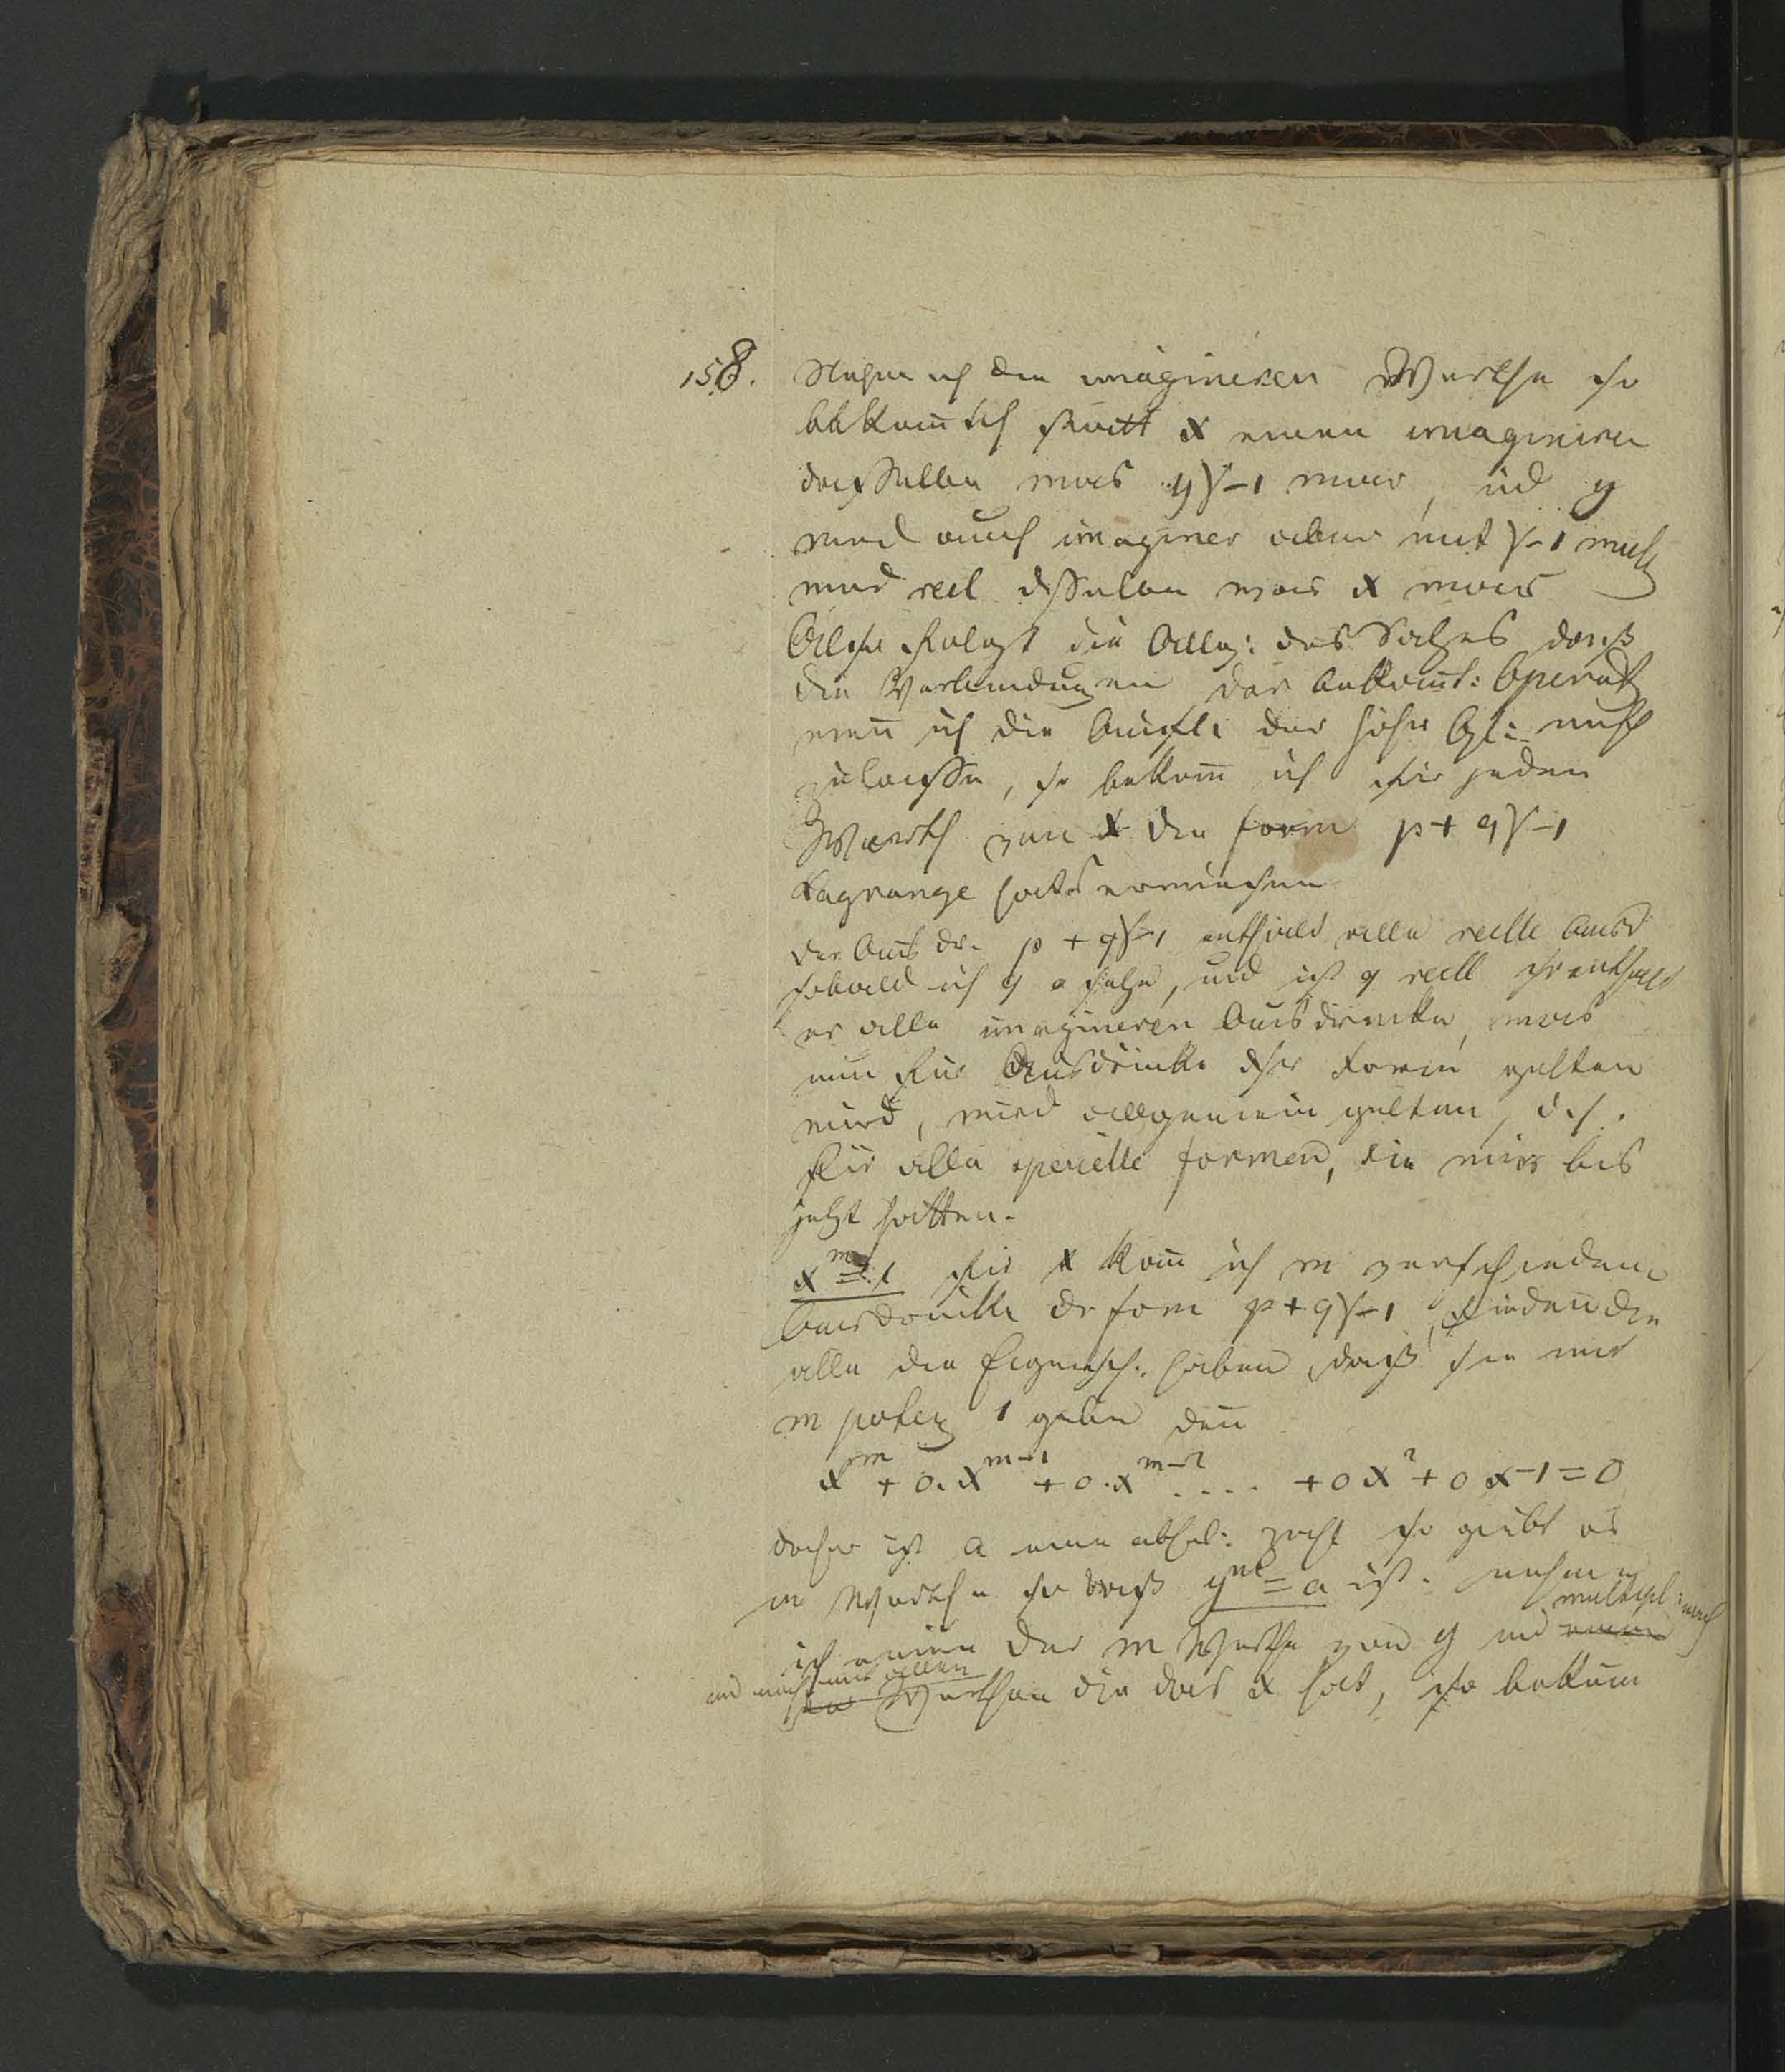 158. Nehme ich den imagineren Werthe so
bekom̄ ich statt x einen imaginere
dasselbe was y√-1 war, ūd y
wird auch imaginer aber mit √-1 mult
wird reel dasselbe was x war
Also folgt die Allg: des Satzes daß
die Verbindungen der bekan̄t: Operat
wen̄ ich die Aufl: der höhr Gl: mit
zulasse, so bekom̄ ich für jeden
Werth von x die form p + q√-1
Lagrange hats erwiesen
der Ausdr. p + q√-1 enthält alle reelle Ausd
sobald ich q o setze, und ist q reell so enthält
er alle imagineren Ausdrücke, was
nun für Ausdrücke dser Form gelten
wird, wird allgemein gelten, d.h.
für alle specielle formen, die wir bis
jetzt hatten.
x^m = 1 für x kan̄ ich m verschiedene
Ausdrücke dr form p + q√-1, finden die
alle die Eigensch: haben, daß sie mit
m potenz 1 geben den̄
x^m + 0.x^{m-1} + 0.x^{m-2} .... + 0x² + 0x - 1 = 0
daher ist a eine absol: Zahl so giebt es
m Werthe so daß y^m = a ist. nehme
multipl:
ich einen der m Werthe von y und einen
und mit allen
Werthen die das x hat, so bekom̄